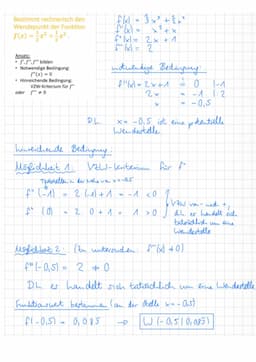 Bestimmt rechnerisch den
Wendepunkt der Funktion
f(x) = 1/3 x³ + 1/2 x².
Ansatz:
• f', f'', f''' bilden
• Notwendige Bedingung:
f''(x) = 0
• Hinreichende Bedingung:
VZW-Kriterium für f''
oder f''' ≠ 0
f(x) = 1/3 x³ + 1/2 x²
f'(x) = x² + x
f''(x) = 2x + 1
f'''(x) = 2
notwendige Bedingung:
f''(x) = 2x + 1 = 0 | -1
2x = -1 | :2
x = -0,5
D.h. x = -0,5 ist eine potentielle
Wendestelle
hinreichende Bedingung:
Möglichkeit 1: VZW-Kriterium für f''
f''(-1) = 2·(-1) + 1 = -1 < 0
f''(0) = 2·0 + 1 = 1 > 0
VZW von - nach +,
d.h. es handelt sich
tatsächlich um eine
Wendestelle
Möglichkeit 2: (zu untersuchen f'''(x) ≠ 0)
f'''(-0,5) = 2 ≠ 0
D.h. es handelt sich tatsächlich um eine Wendestelle
Funktionswert bestimmen (an der Stelle x = -0,5)
f(-0,5) = 0,083 → W(-0,5|0,083)